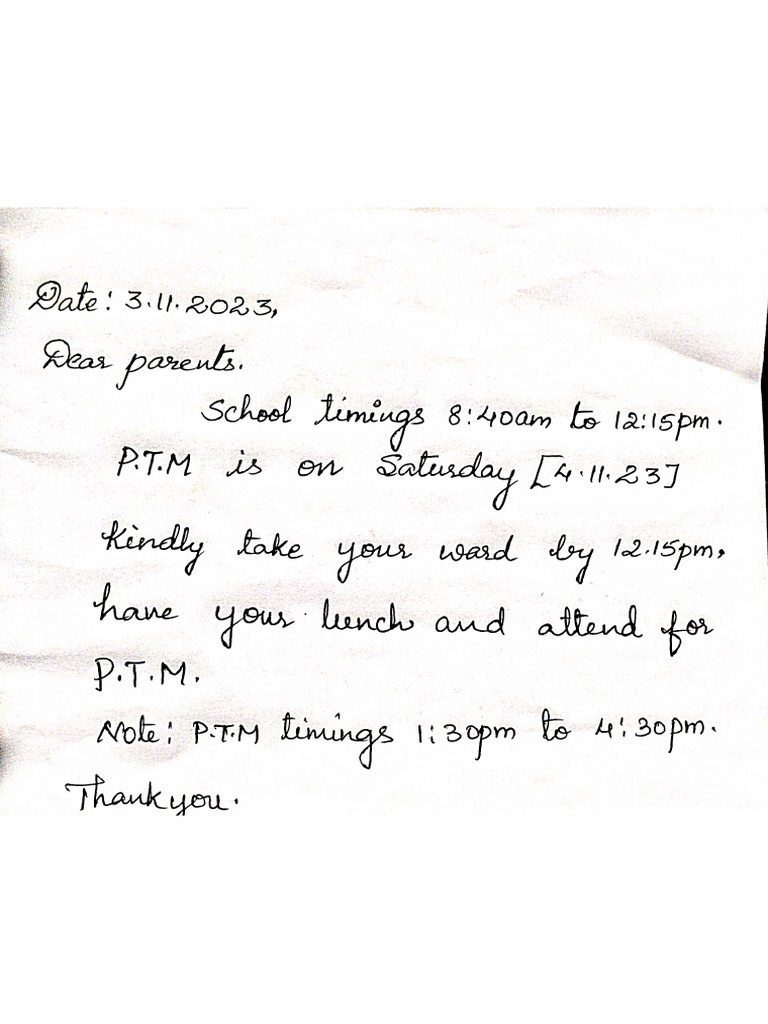 Date: 3.11.2023,
Dear parents.
School timings 8:40am to 12:15pm.
P.T.M is on Saturday [4.11.23]
Kindly take your ward by 12.15pm,
have your lunch and attend for
P.T.M.
Note: P.T.M timings 1:30pm to 4:30pm.
Thank you.